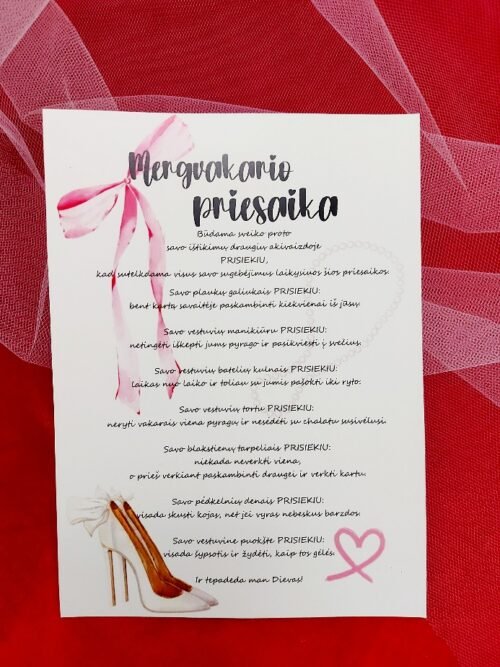 Mergvakario
priesaika
Būdama sveiko proto
savo ištikimų draugių akivaizdoje
PRISIEKIU,
kad sutelkdama visus savo sugebėjimus laikysiuos šios priesaikos.
Savo plaukų galiukais PRISIEKIU:
bent kartą savaitėje paskambinti kiekvienai iš jūsų.
Savo vestuvių manikiūru PRISIEKIU:
netingėti iškepti jums pyrago ir pasikviesti į svečius.
Savo vestuvių batelių kulnais PRISIEKIU:
laikas nuo laiko ir toliau su jumis pašokti iki ryto.
Savo vestuvių tortu PRISIEKIU:
neryti vakarais viena pyragų ir nesėdėti su chalatu susivėlusi.
Savo blakstienų tarpeliais PRISIEKIU:
niekada neverkti viena,
o prieš verkiant paskambinti draugei ir verkti kartu.
Savo pėdkelnių denais PRISIEKIU:
visada skusti kojas, net jei vyras nebeskus barzdos.
Savo vestuvine puokšte PRISIEKIU:
visada šypsotis ir žydėti, kaip tos gėlės.
Ir tepadeda man Dievas!